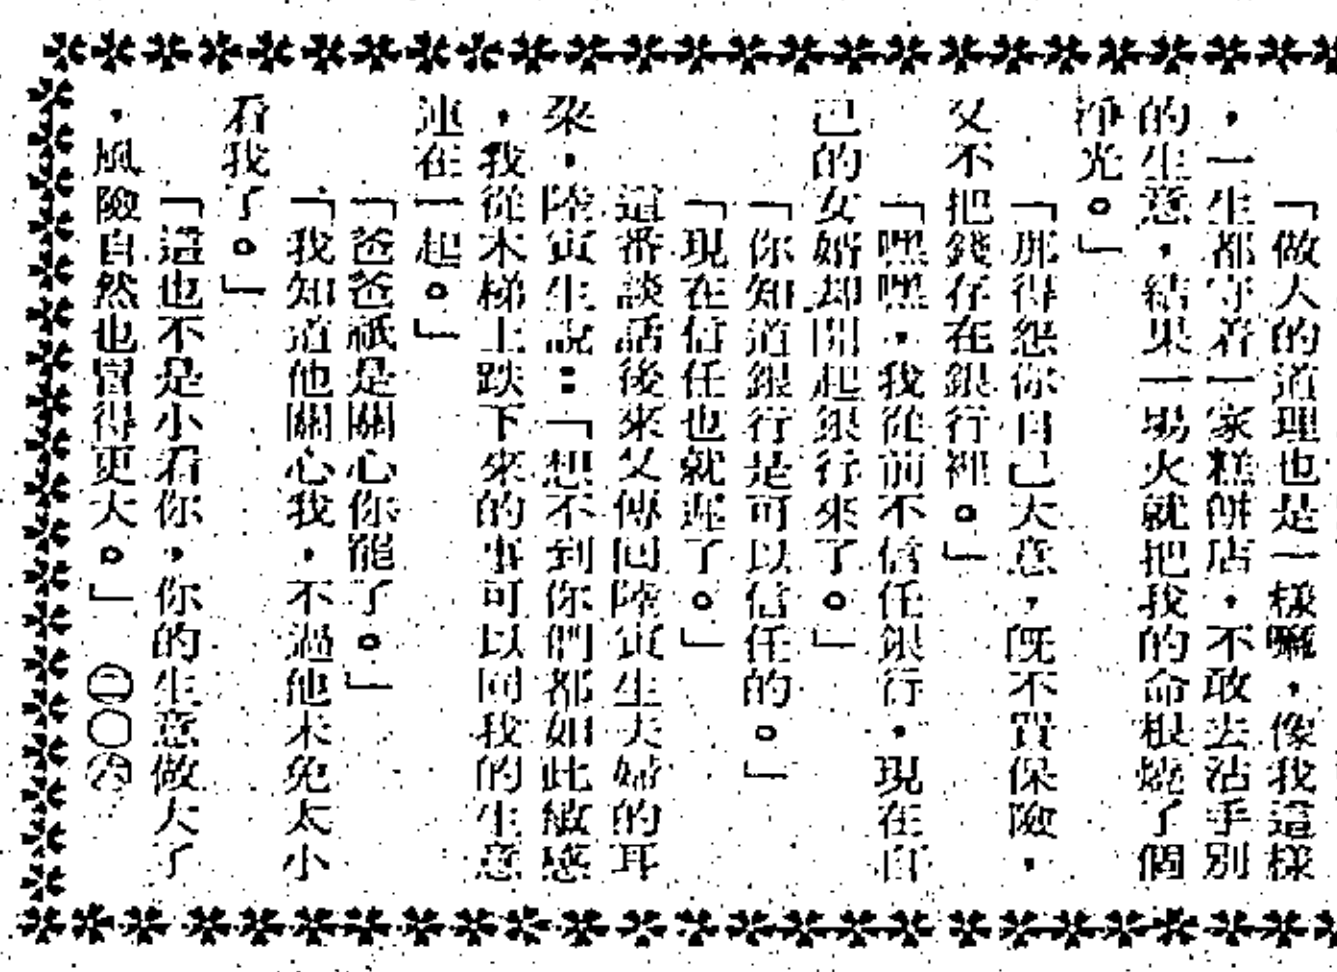 「做人的道理也是一樣嘛，像我這樣
，一生都守着一家糕餅店，不敢去沾手別
的生意，結果一場火就把我的命根燒了個
淨光。」
「那得怨你自己大意，旣不買保險，
又不把錢存在銀行裡。」
「嘿嘿，我從前不信任銀行，現在自
己的女婿却開起銀行來了。」
「你知道銀行是可以信任的。」
「現在信任也就遲了。」
這番談話後來又傳回陸寅生夫婦的耳
朶，陸寅生說：「想不到你們都如此敏感
，我從木梯上跌下來的事可以同我的生意
連在一起。」
「爸爸祇是關心你罷了。」
「我知道他關心我，不過他未免太小
看我了。」
「這也不是小看你，你的生意做大了
，風險自然也冒得更大。」 ㊁〇㊅